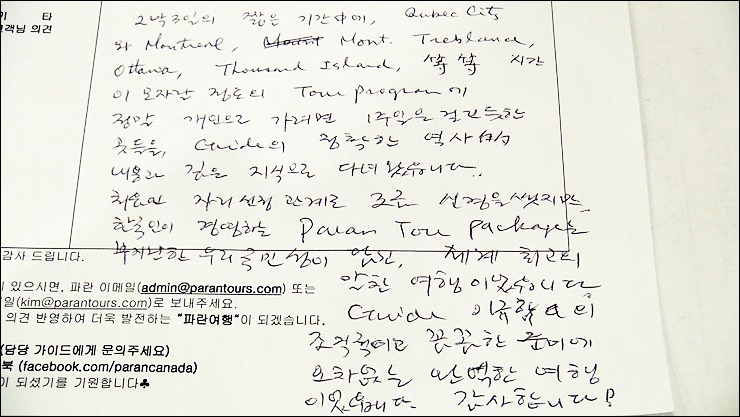 기 타
고객님 의견
2박3일의 짧은 기간中에, Qubec City
와 Montreal, Mount Mont. Treblance,
Ottawa, Thousand Island, 等等 시간
이 모자란 정도의 Tour program에
정말 개인으로 가려면 1주일은 걸릴듯한
곳들을, Guide의 정확한 역사的
내용과 깊은 지식으로 다녀 왔습니다.
처음엔 자리 선정 관계로 조금 신경을 썼지만,
한국인이 경영하는 Paran Tour package는
부지런한 우리 국민성이 입힌, 세계 최고의
알찬 여행이었습니다.
Guide 의
조직적이고 꼼꼼한 준비에
오차없는 완벽한 여행
이었습니다. 감사합니다!
감사 드립니다.
있으시면, 파란 이메일(admin@parantours.com) 또는
일(kim@parantours.com)로 보내주세요.
의견 반영하여 더욱 발전하는 "파란여행"이 되겠습니다.
(담당 가이드에게 문의주세요)
북 (facebook.com/parancanada)
이 되셨기를 기원합니다♣